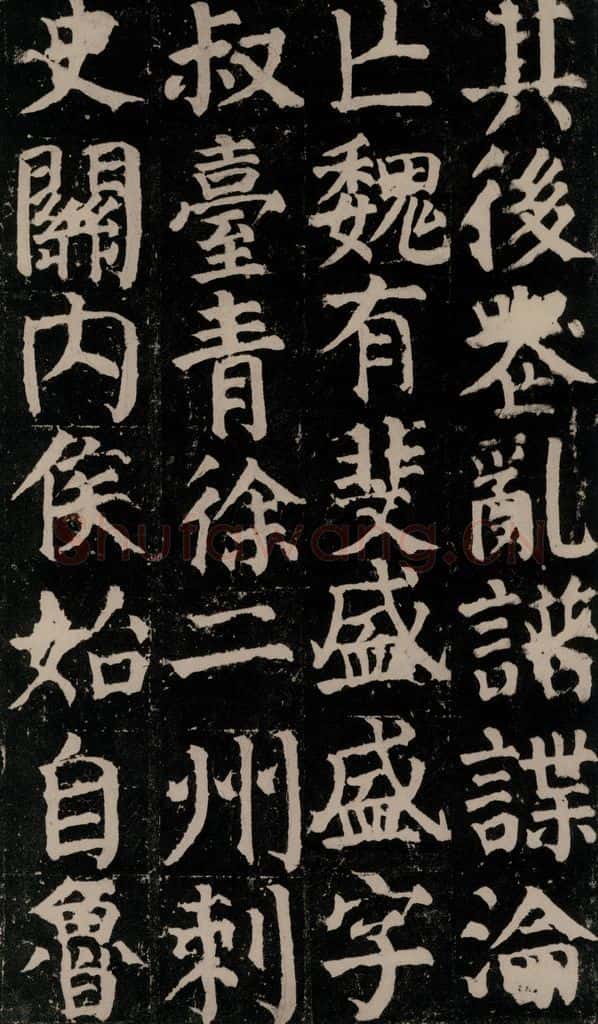 其後喪亂譜諜淪
亡魏有斐盛盛字
叔臺青徐二州刺
史關內侯始自魯
Shufawang.CN